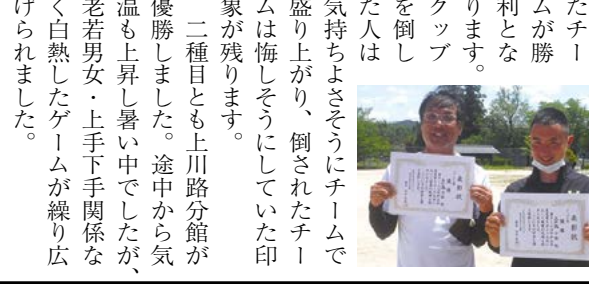 たチー
ムが勝
利とな
ります。
クッブ
を倒し
た人は
気持ちよさそうにチームで
盛り上がり、倒されたチー
ムは悔しそうにしていた印
象が残ります。
二種目とも上川路分館が
優勝しました。途中から気
温も上昇し暑い中でしたが、
老若男女・上手下手関係な
く白熱したゲームが繰り広
げられました。
表彰状
表彰状